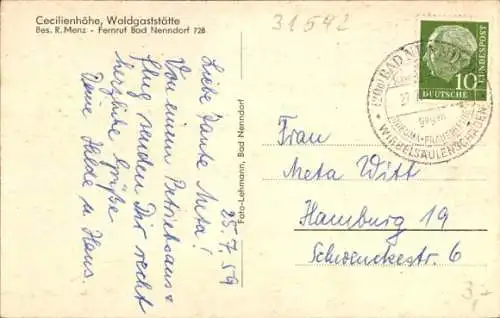 31542
Cecilienhöhe, Waldgaststätte
Bes. R. Menz - Fernruf Bad Nenndorf 728
Liebe Tante Meta!
Von einem Betriebsaus-
flug senden Dir recht
herzliche Grüße
Deine Helde u. Hans.
25.7.59
Foto-Lehmann, Bad Nenndorf
BAD NENNDORF
gegen
RHEUMA · FRAUENLEIDEN
WIRBELSÄULENSCHÄDEN
10
DEUTSCHE
BUNDESPOST
Frau
Meta Witt
Hamburg 19
Schwenckestr. 6
3,-